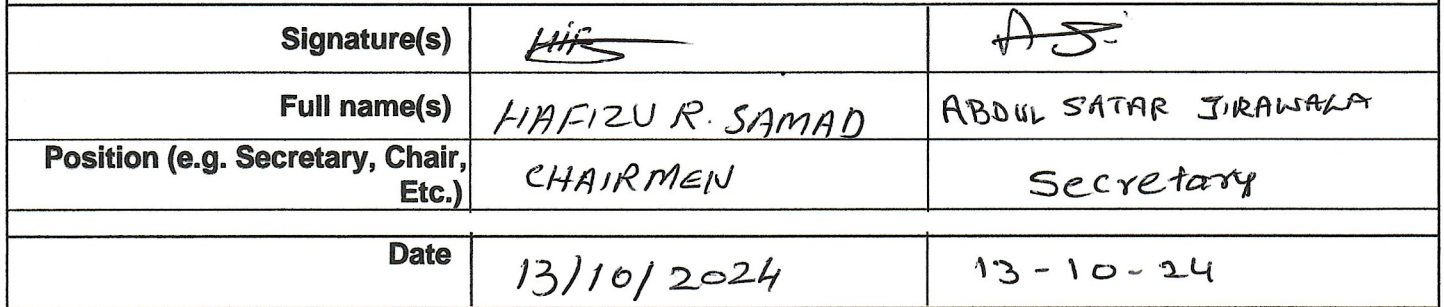 Signature(s)
Full name(s) HAFIZU R. SAMAD ABDUL SATAR JIRAWALA
Position (e.g. Secretary, Chair,
Etc.) CHAIRMEN Secretary
Date 13/10/2024 13-10-24